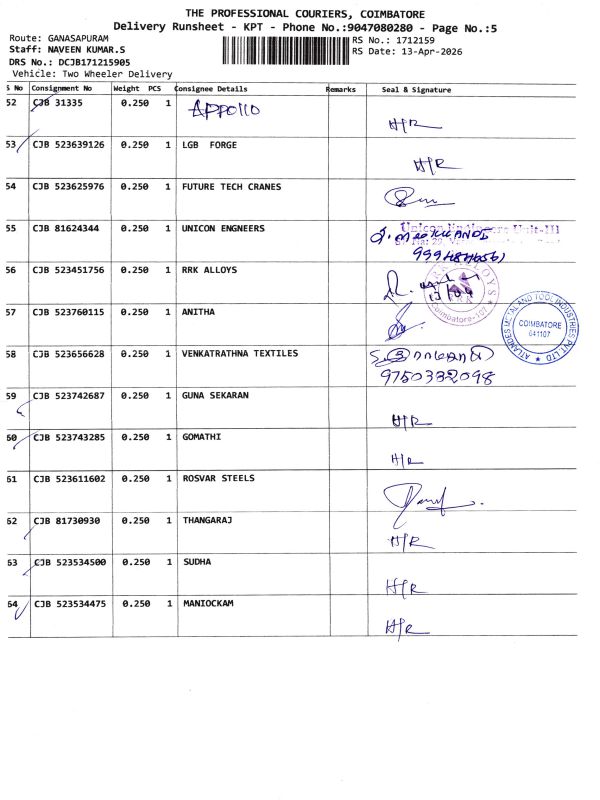 THE PROFESSIONAL COURIERS, COIMBATORE
Delivery Runsheet - KPT - Phone No.:9047080280 - Page No.:5
Route: GANASAPURAM
RS No.: 1712159
Staff: NAVEEN KUMAR.S
RS Date: 13-Apr-2026
DRS No.: DCJB171215905
Vehicle: Two Wheeler Delivery
S No Consignment No Weight PCS Consignee Details Remarks Seal & Signature
52 CJB 31335 0.250 1 Appollo H/R
53 CJB 523639126 0.250 1 LGB FORGE H/R
54 CJB 523625976 0.250 1 FUTURE TECH CRANES
55 CJB 81624344 0.250 1 UNICON ENGNEERS Unicon Unit-III
56 CJB 523451756 0.250 1 RRK ALLOYS RRK ALLOYS Coimbatore-107 13/04
57 CJB 523760115 0.250 1 ANITHA
ATLANDES METAL AND TOOL INDUSTRIES PVT LTD COIMBATORE 641107
58 CJB 523656628 0.250 1 VENKATRATHNA TEXTILES
9750332098
59 CJB 523742687 0.250 1 GUNA SEKARAN H/R
60 CJB 523743285 0.250 1 GOMATHI H/R
61 CJB 523611602 0.250 1 ROSVAR STEELS
62 CJB 81730930 0.250 1 THANGARAJ H/R
63 CJB 523534500 0.250 1 SUDHA H/R
64 CJB 523534475 0.250 1 MANIOCKAM H/R